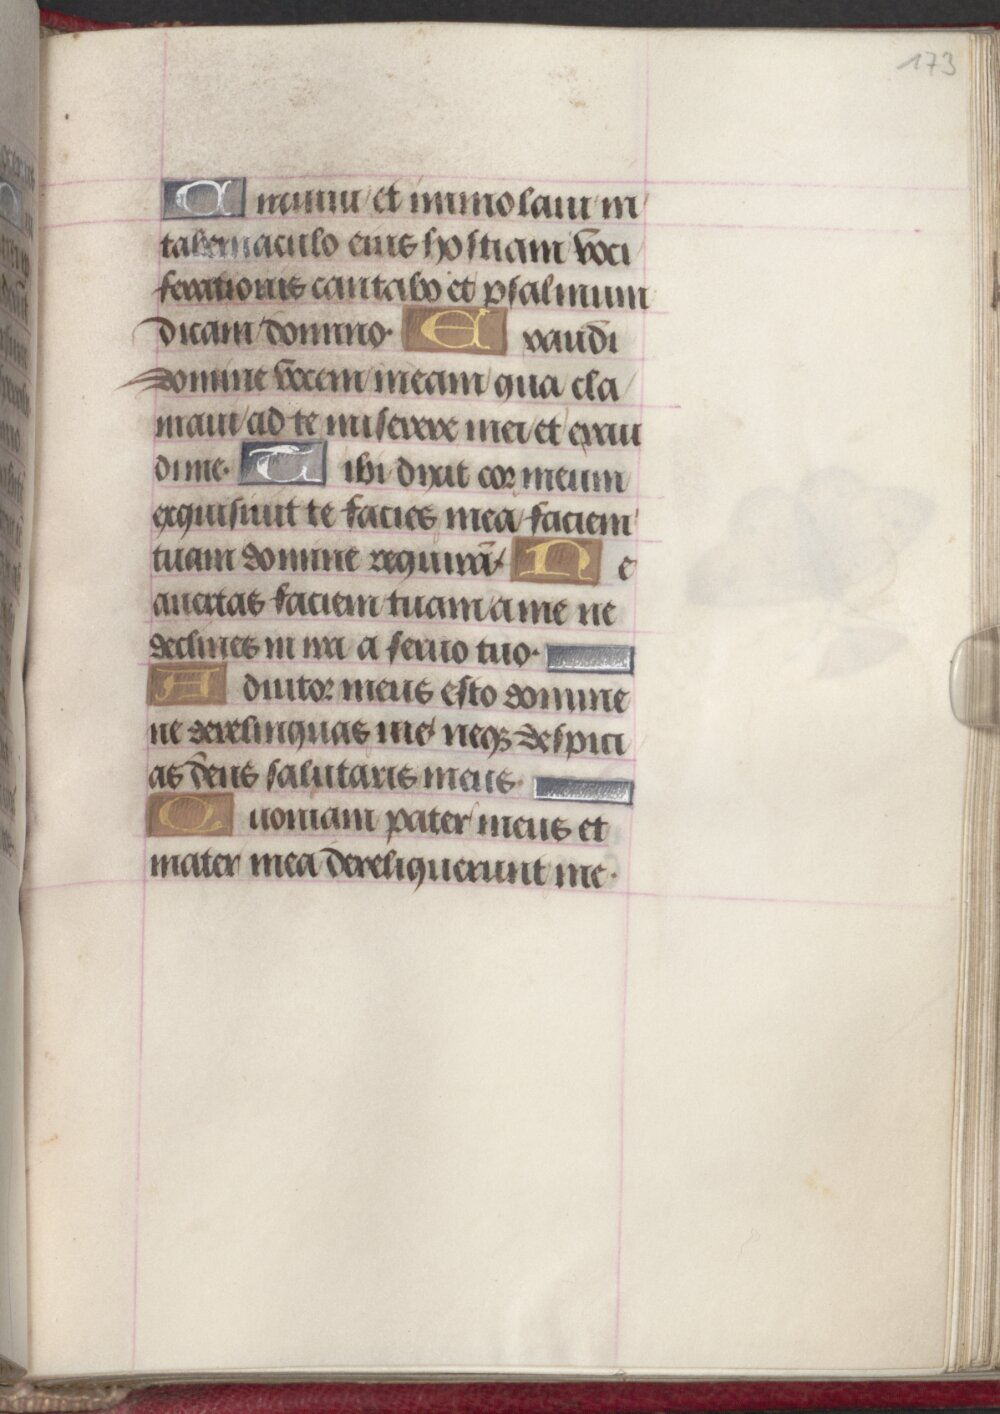 173
Circuiui et immolaui in
tabernaculo eius hostiam voci
ferationis cantabo et psalmum
dicam domino. Exaudi
domine vocem meam qua cla
maui ad te miserere mei et exau
di me. Tibi dixit cor meum
exquisiuit te facies mea faciem
tuam domine requirā. Ne
auertas faciem tuam a me ne
declines in ira a seruo tuo.
Adiutor meus esto domine
ne derelinquas me neqꝫ despici
as deus salutaris meus.
Quoniam pater meus et
mater mea dereliquerunt me.